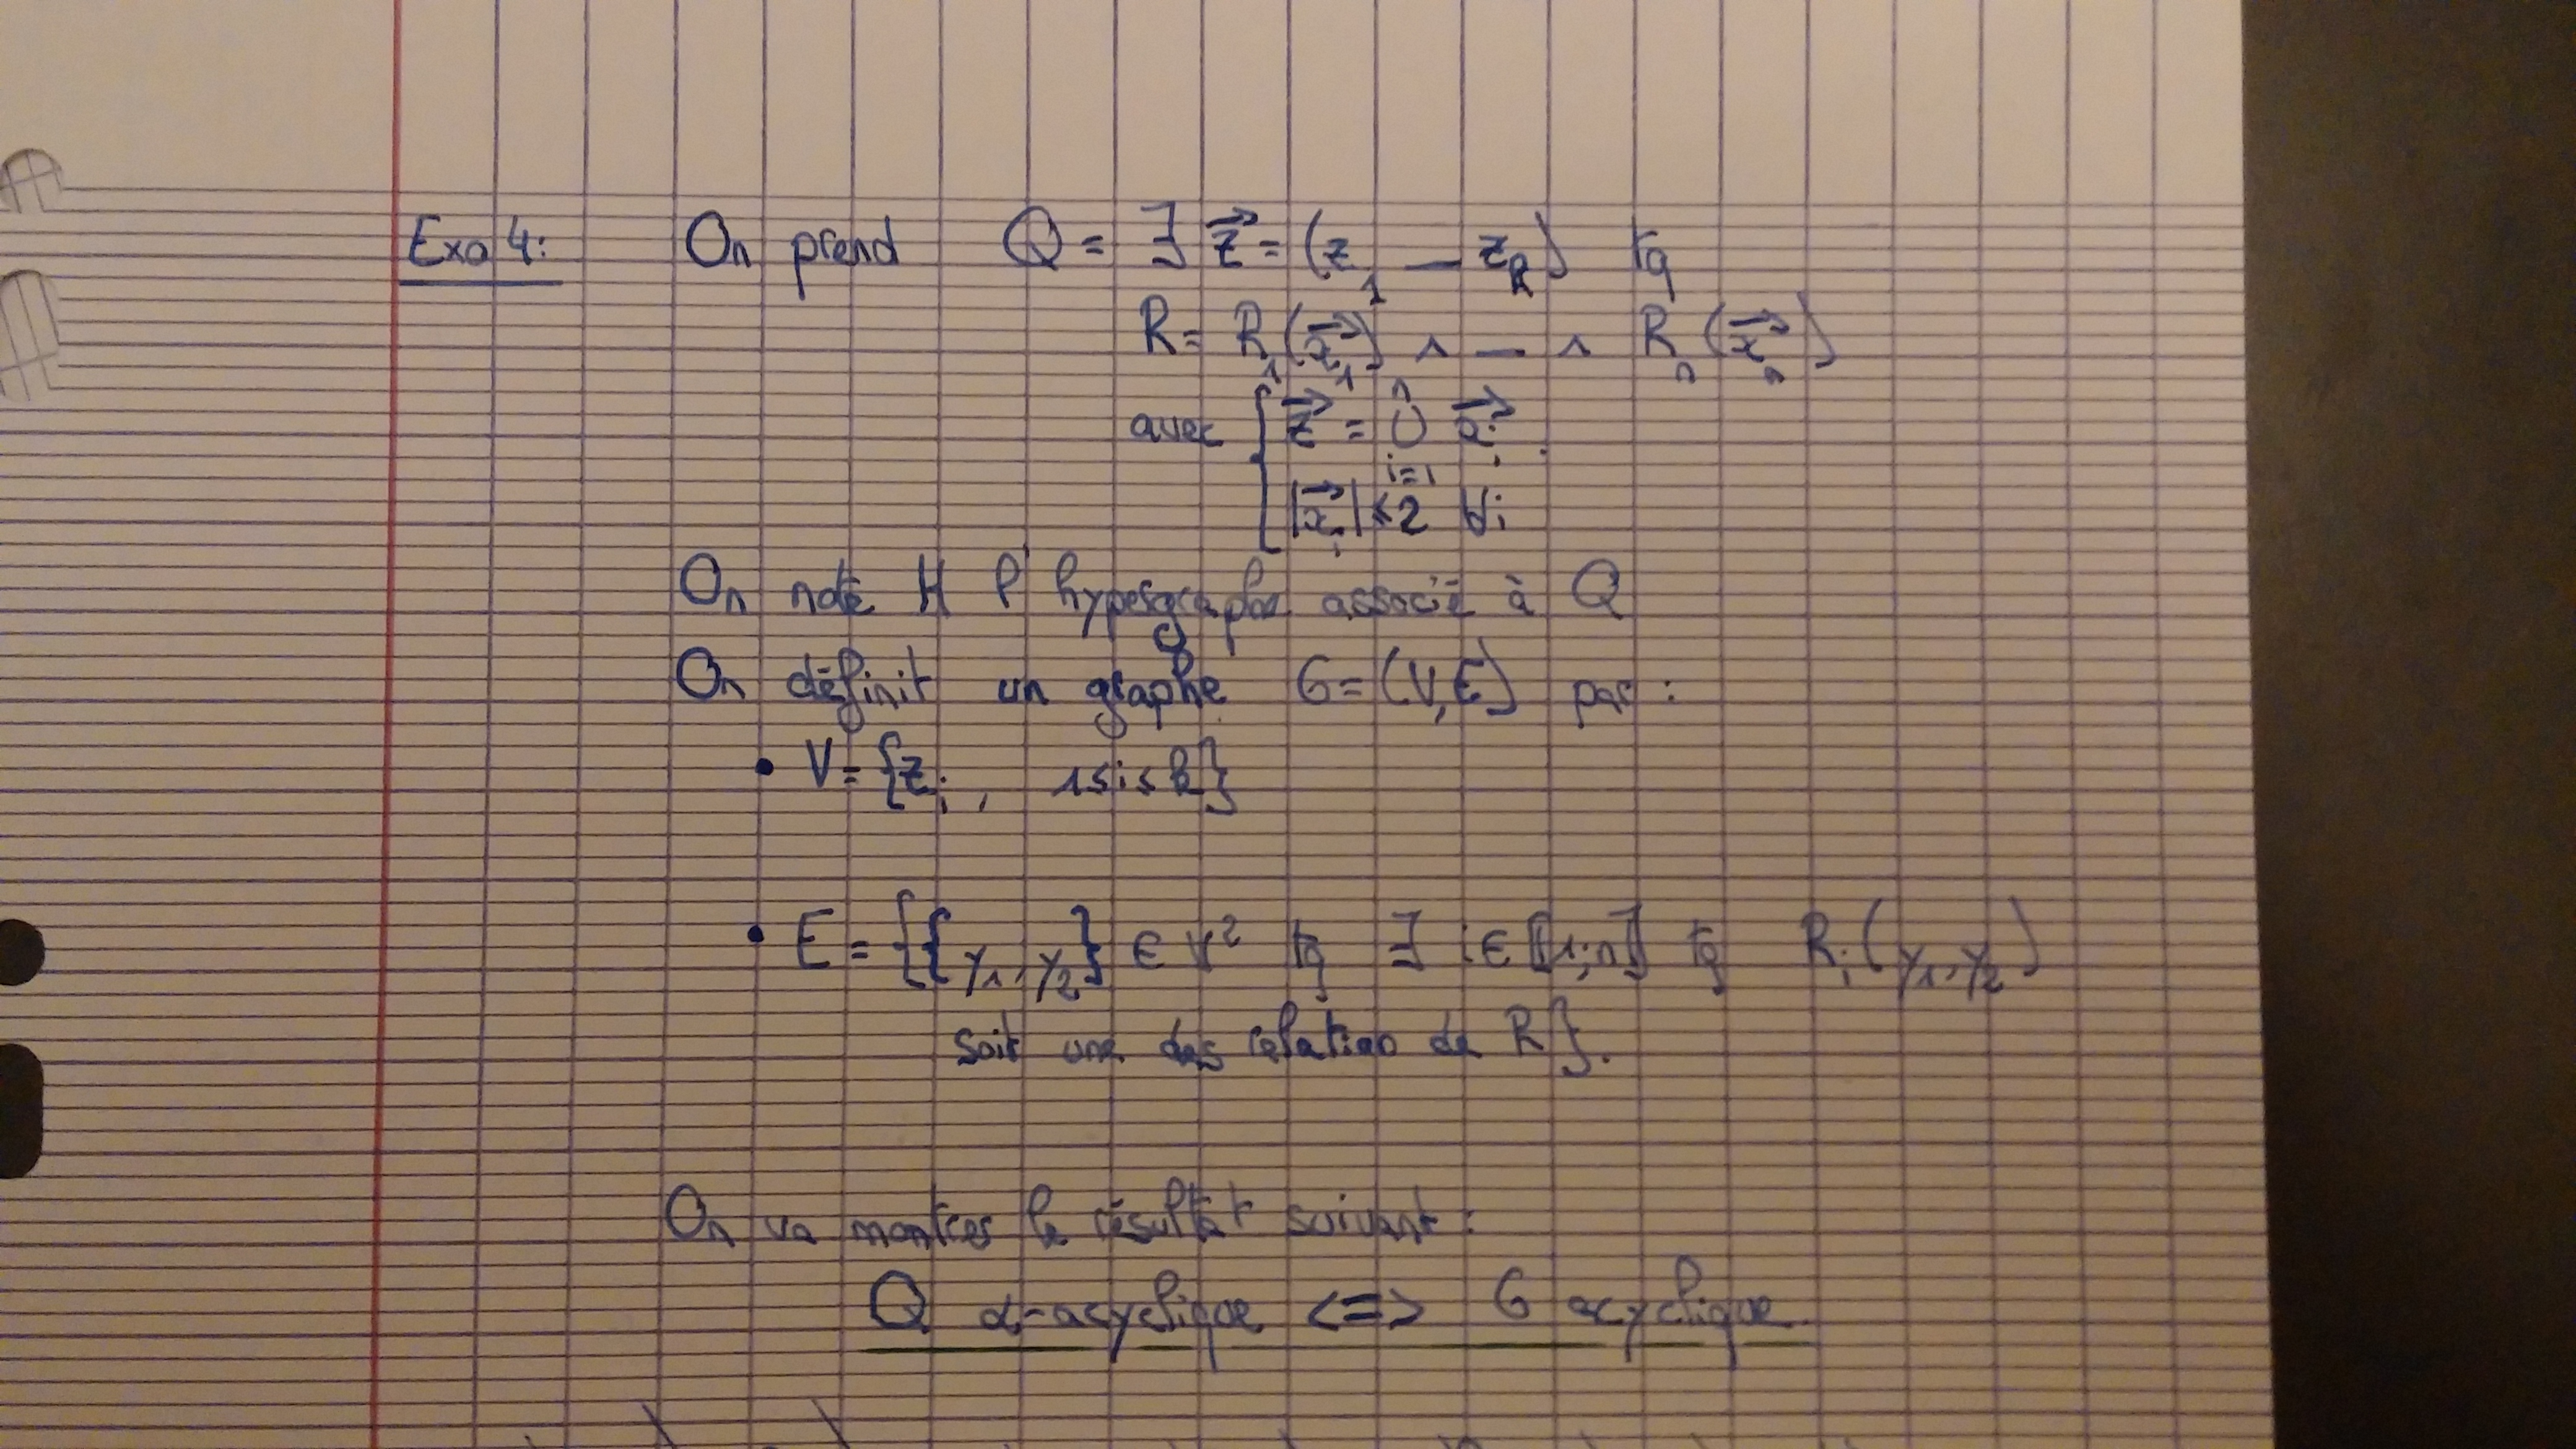 Exo 4: On prend Q = ∃ z⃗ = (z₁ — z_k) tq
R = R₁(x⃗₁) ∧ — ∧ Rₙ(x⃗ₙ)
avec { z⃗ = ∪ᵢ₌₁ⁿ x⃗ᵢ
|x⃗ᵢ| ≤ 2 ∀i
On note H l'hypergraphe associé à Q
On définit un graphe G = (V, E) par :
• V = {zᵢ, 1 ≤ i ≤ k}
• E = {{y₁, y₂} ∈ V² tq ∃ i ∈ ⟦1; n⟧ tq Rᵢ(y₁, y₂)
soit une des relation de R}.
On va montrer le résultat suivant :
Q α-acyclique <=> G acyclique